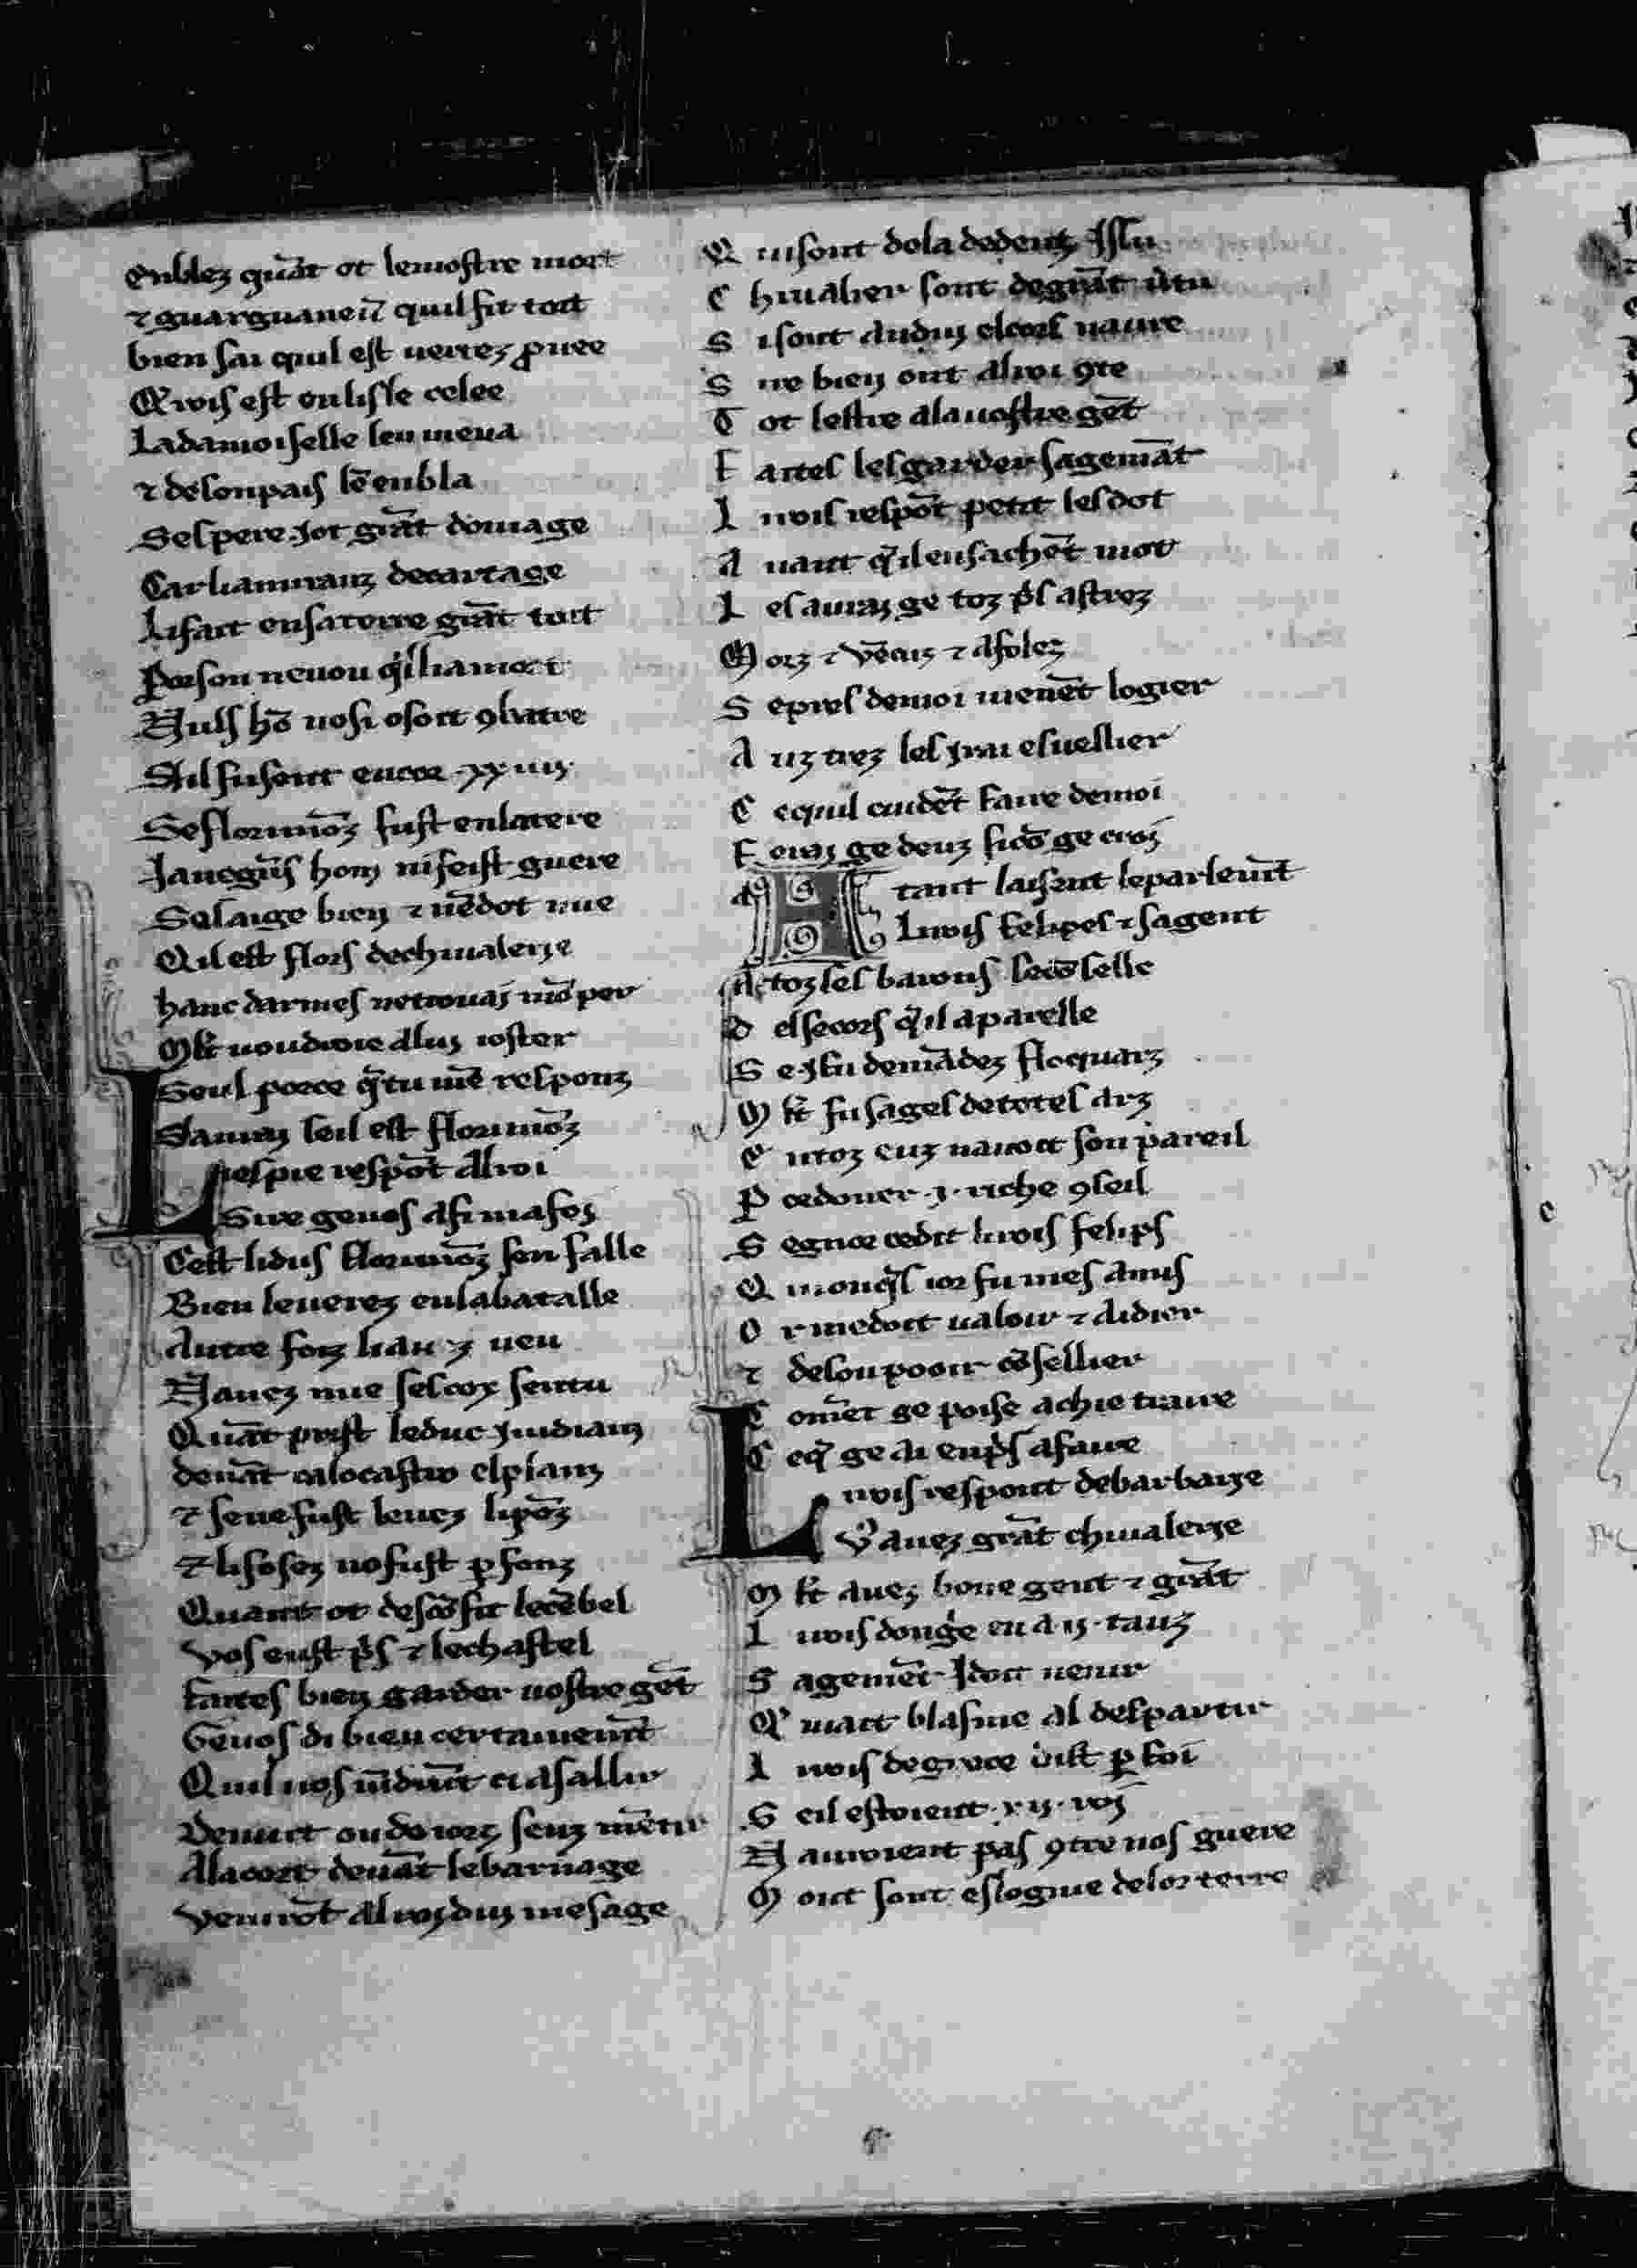 Enblez quāt ot lemostre mort
⁊ guarguaneū quil fit tort
bien sai quil est uertez ꝓuee
Q rois est onlisle celee
Ladamoiselle len mena
⁊ desonpais lē enbla
Sespere Jot grāt domage
Car liamiranz decartage
Lifait ensaterre grāt tort
Porson neuou qͥl liamort
Nuls hō nosi osoit ꝯbatre
Sil fusent encor .xx iiij.
Seflorimōz fust enlatere
Janegͥs hom nifeist guere
Salaige bien ⁊ nēdot mie
Qil est flors dechiualerie
hanc darmes netrouai mō per
Mlt uoudroie alui ioster
Seul porce q̄tu mē responz
Saurai seil est florimōz
Lespie respōt alroi
Sire geuos afi mafoi
Cest lidus florimōz sen falle
Bien leuerez enlabatalle
Autre foiz liauez ueu
Nauez mie sescox sentu
Quāt prist leduc Jndianz
deuāt calocastro elplanz
⁊ senefust leuez lipōz
⁊ lifosez nofust ꝓfonz
Quant ot descōfit lecēbel
Vos eust pͥs ⁊ lechastel
Faites bien garder uostre gēt
Geuos di bien certainemēt
Quil uos uēdrūt ci asallir
Venirt ou do iorz senz mētir
Alacort deuāt lebarnage
Venirōt al roi dui mesage
Q uisont dola dedenz Jssu
C hiualier sont degrāt ūtu
S isont andui elcors naure
S ne bien ont alroi ꝯte
T ot lestre alauostre gēt
F aites les garder sagemāt
L irois respōt petit lesdot
A uant qͥl ensachēt mot
L es aurai ge toz pͥs astrez
M orz ⁊ vēcuz ⁊ afolez
S epres demoi uienēt logier
A uz trez les Jrai esuellier
C equil cuidēt faire demoi
F erai ge deuz sicō ge croi
A tant laisent leparlemēt
Lirois felipes ⁊ sagent
A toz ses barons secōselle
D elsecors qͥl aparelle
S e Jfu demādez floquarz
M lt fu sages detotes arz
E ntoz euz nauoit son pareil
P ordoner .j. riche ꝯseil
S egnor cedit lirois felips
Q uionqͥs ior fu mes amis
O r medoit ualoir ⁊ aidier
⁊ desonpooir cōsellier
C omēt ge poise achie traire
C eq̄ ge ai enpͥs afaire
L irois respont debarbarie
V̄ auez grāt chiualerie
M lt auez bone gent ⁊ grāt
L irois dongͥe en a ij. tanz
S agemēt Jdoit uenir
Q niait blasme al despartir
L irois degrece uīt ꝑ foi
S eil estoient .xij. roi
N auroient pas ꝯtre nos guere
M oit sont eslogne delor terre